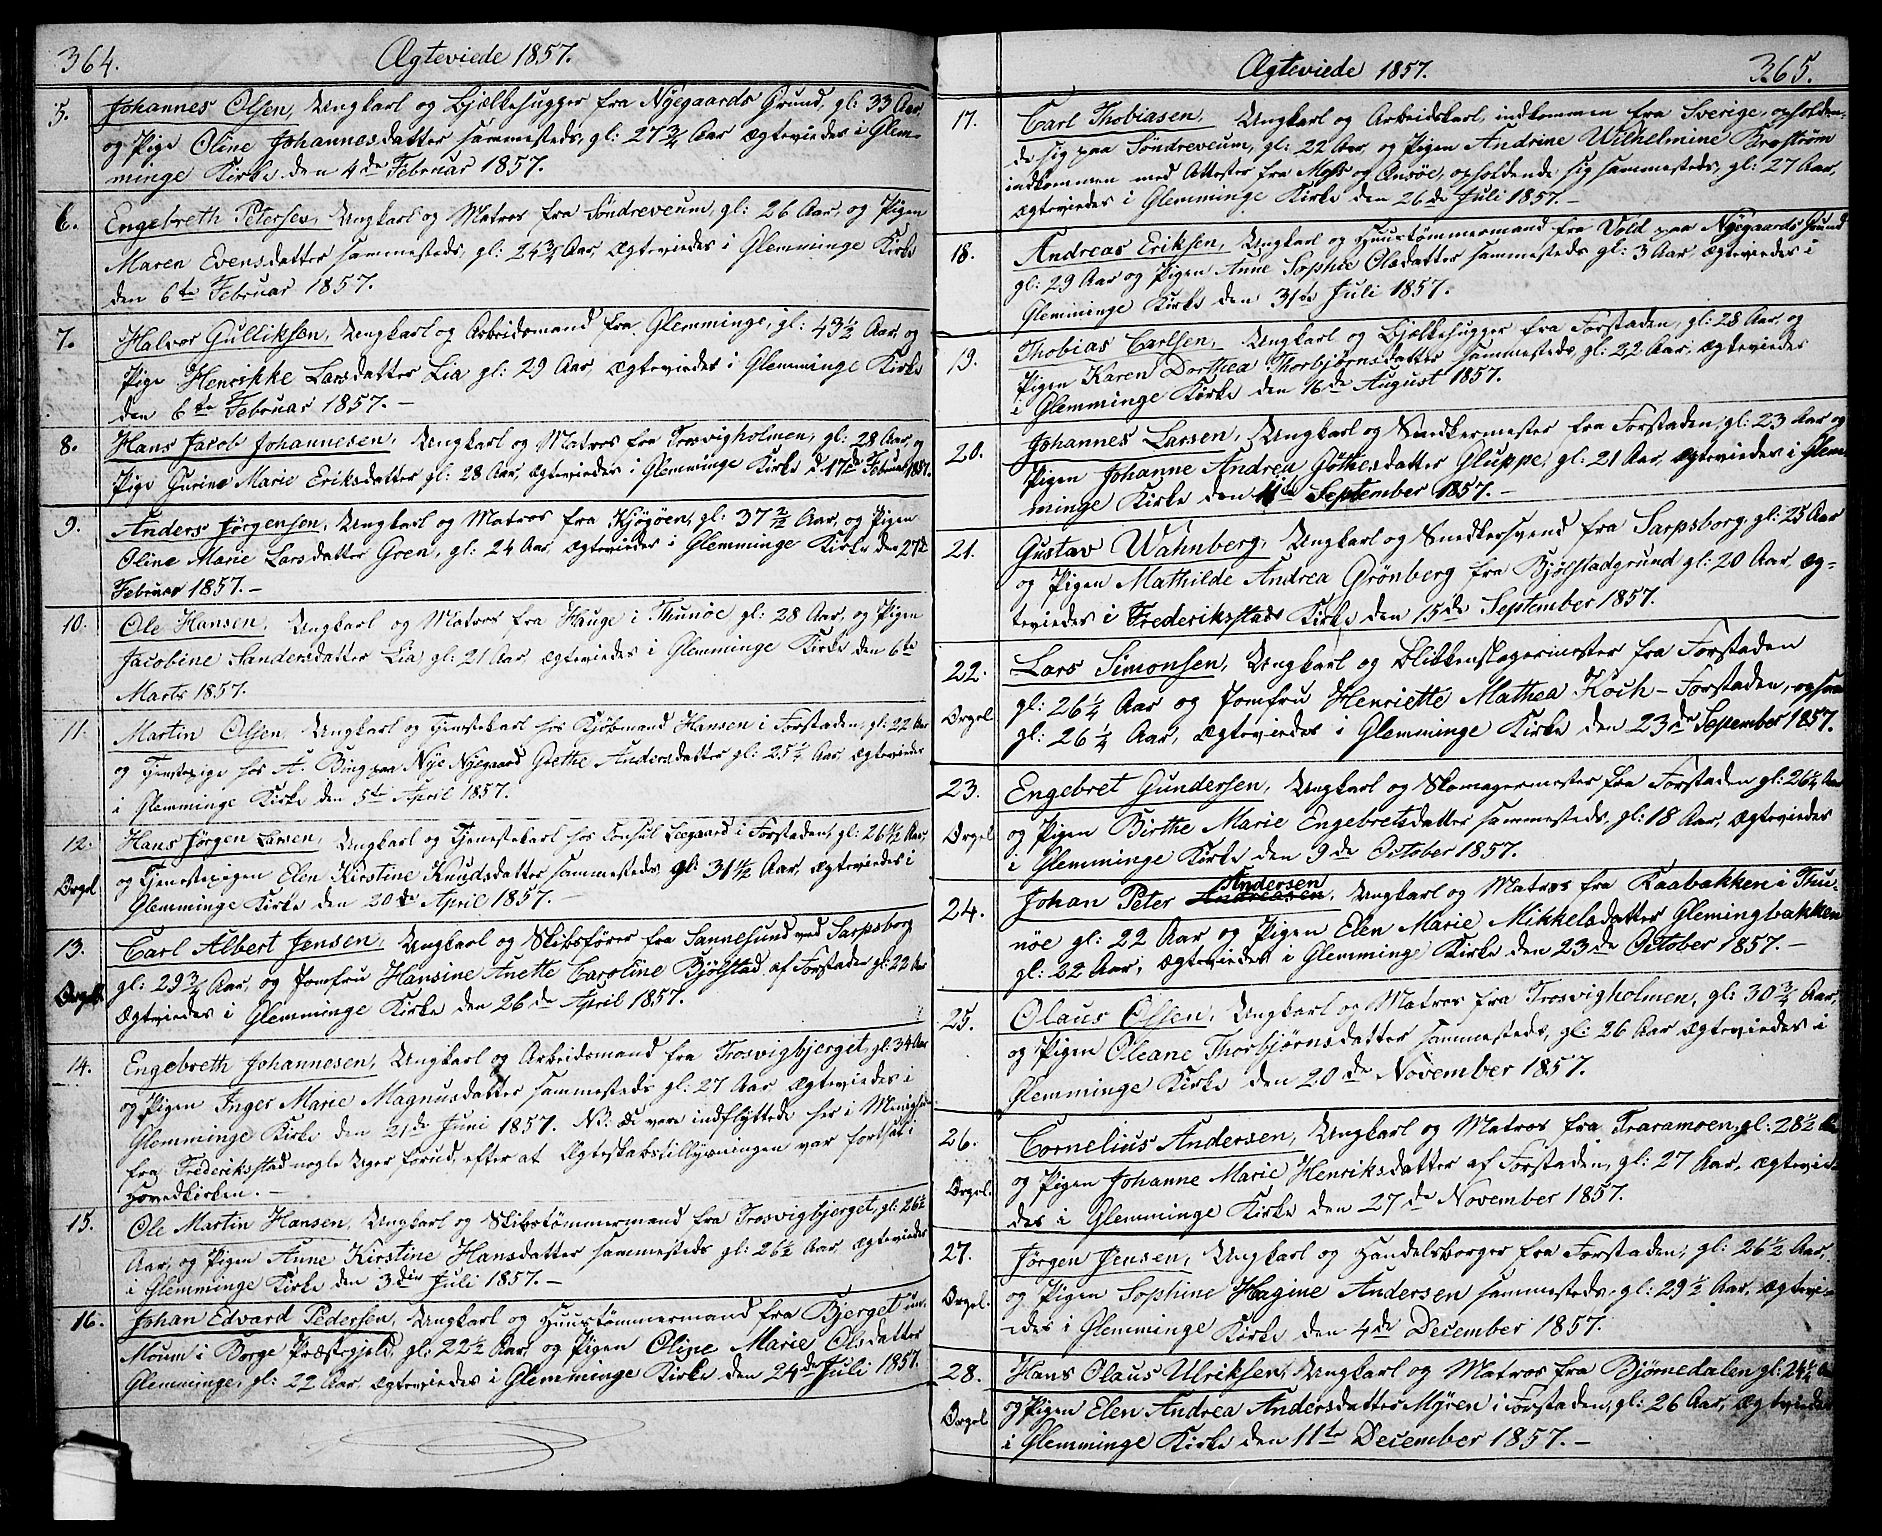 364. Ægteviede 1857.
5. Johannes Olsen, Ungkarl og Bjælkehugger fra Nyegaards Grund, gl: 33 Aar,
og Pige Oline Johannesdatter sammesteds, gl: 27 3/4 Aar Ægteviedes i Glem-
minge Kirke den 4de Februar 1857.
6. Engebreth Petersen, Ungkarl og Matros fra Søndreveum, gl: 26 Aar, og Pigen
Maren Evensdatter sammesteds, gl: 24 3/4 Aar, Ægteviedes i Glemminge Kirke
den 6te Februar 1857.
7. Halvor Gulliksen, Ungkarl og Arbeidsmand fra Glemminge, gl: 49 1/2 Aar, og
Pige Henrikke Larsdatter Lia gl: 29 Aar, Ægteviedes i Glemminge Kirke
den 6te Februar 1857. –
8. Hans Jacob Johannesen, Ungkarl og Matros fra Trosvigholmen, gl: 28 Aar, og
Pige Gurine Marie Eriksdatter gl: 28 Aar, Ægteviedes i Glemminge Kirke d 17de Februar 1857.
9. Anders Jørgensen, Ungkarl og Matros fra Kjøgøen, gl: 37 Aar, og Pigen
Oline Marie Larsdatter Gren, gl: 24 Aar, Ægteviedes i Glemminge Kirke den 27de
Februar 1857. –
10. Ole Hansen, Ungkarl og Matros fra Hauge i Thunøe gl: 28 Aar, og Pigen
Jacobine Sandersdatter Lia gl: 21 Aar, Ægteviedes i Glemminge Kirke den 6te
Marts 1857.
11. Martin Olsen, Ungkarl og Tjenstekarl hos Kjøbmand Hansen i Forstaden, gl: 22 Aar
og Tjenstepige hos A. Bing paa Nye Nyegaard Grethe Andersdatter gl: 25 1/2 Aar, Ægteviedes
i Glemminge Kirke den 5te April 1857.
12. Hans Jørgen Larsen, Ungkarl og Tjenestekarl hos Consul Leegaard i Forstaden, gl: 26 1/2 Aar,
Orgel. og Tjenestepigen Elen Kirstine Knudsdatter sammesteds gl: 31 1/2 Aar, Ægteviedes i
Glemminge Kirke den 20de April 1857. –
13. Carl Albert Jensen, Ungkarl og Skibsfører fra Sannesund ved Sarpsborg
Orgel. gl: 29 3/4 Aar, og Jomfru Hansine Anette Caroline Bjølstad af Forstaden gl: 22 Aar
Ægteviedes i Glemminge Kirke den 26de April 1857.
14. Engebreth Johannesen, Ungkarl og Arbeidsmand fra Trosvigbjerget, gl: 34 Aar
og Pigen Inger Marie Magnusdatter sammesteds gl: 27 Aar Ægteviedes i
Glemminge Kirke den 21de Juni 1857. NB: De vare indflyttede her i Menigheden
fra Frederiksstad nogle Uger forud, efter at Ægteskabstillysningen var fortsat i
Hovedkirken. –
15. Ole Martin Hansen, Ungkarl og Skibstømmermand fra Trosvigbjerget, gl: 26 1/2
Aar, og Pigen Anne Kirstine Hansdatter sammesteds gl: 26 1/2 Aar, Ægteviedes
i Glemminge Kirke den 3die Juli 1857. –
16. Johan Edvard Pedersen, Ungkarl og Huustømmermand fra Bjerget un.
Moum i Borge Præstegjeld, gl: 22 1/2 Aar, og Pigen Oline Marie Olsdatter
Glemminge, gl: 22 Aar, Ægteviedes i Glemminge Kirke den 24de Juli 1857.
Ægteviede 1857. 365.
17. Carl Thobiasen, Ungkarl og Arbeidskarl, indkommen fra Sverige, opholden-
de sig paa Søndreveum, gl: 22 Aar, og Pigen Andrine Wilhelmine Broström
indkommen med Attester fra Moss og Onsøe, opholdende sig sammesteds, gl: 27 Aar,
Ægteviedes i Glemminge Kirke den 26de Juli 1857. –
18. Andreas Eriksen, Ungkarl og Huustømmermand fra Vold paa Nyegaards Grund
gl: 29 Aar og Pigen Anne Sophie Olsdatter sammesteds gl: 3 Aar, Ægteviedes i
Glemminge Kirke den 31te Juli 1857.
19. Thobias Carlsen, Ungkarl og Bjælkehugger fra Forstaden, gl: 28 Aar, og
Pigen Karen Dorthea Thorbjørnsdatter sammesteds, gl: 22 Aar, Ægteviedes
i Glemminge Kirke den 16de August 1857.
20. Johannes Larsen, Ungkarl og Snedkermester fra Forstaden, gl: 23 Aar og
Pigen Johanne Andrea Gøthesdatter Gluppe, gl: 21 Aar, Ægteviedes i Glem-
minge Kirke den 11te September 1857. –
21. Gustav Wahnberg, Ungkarl og Snedkersvend fra Sarpsborg, gl: 25 Aar
og Pigen Mathilde Andrea Grønberg fra Bjølstadgrund gl: 20 Aar, Æg-
teviedes i Frederiksstads Kirke den 15de September 1857.
22. Lars Simonsen, Ungkarl og Blikkenslagermester fra Forstaden
Orgel gl: 26 1/4 Aar og Jomfru Henriette Mathea Koch – Forstaden, ogsaa
gl: 26 1/4 Aar, Ægteviedes i Glemminge Kirke den 23de September 1857.
23. Engebret Gundersen, Ungkarl og Skomagermester fra Forstaden gl: 26 1/2 Aar
Orgel og Pigen Birthe Marie Engebretsdatter sammesteds, gl: 18 Aar, Ægteviedes
i Glemminge Kirke den 9de October 1857.
24. Johan Peter Andreasen Andersen, Ungkarl og Matros fra Kaabakken i Thu-
nøe gl: 22 Aar og Pigen Elen Marie Mikkelsdatter Glemingbakken
gl: 22 Aar, Ægteviedes i Glemminge Kirke den 23de October 1857. –
25. Olaus Olsen, Ungkarl og Matros fra Trosvigholmen, gl: 30 3/4 Aar,
og Pigen Oleane Thorbjørnsdatter sammesteds, gl: 26 Aar Ægteviedes i
Glemminge Kirke den 20de November 1857.
26. Cornelius Andersen, Ungkarl og Matros fra Traramoen, gl: 28 1/2 Aar
Orgel. og Pigen Johanne Marie Henriksdatter af Forstaden, gl: 27 Aar, Ægtevie-
des i Glemminge Kirke den 27de November 1857.
27. Jørgen Jensen, Ungkarl og Handelsborger fra Forstaden, gl: 26 1/2 Aar,
Orgel. og Pigen Sophine Hagine Andersen sammesteds, gl: 29 1/2 Aar, Ægtevie-
-des i Glemminge Kirke den 4de December 1857.
28. Hans Olaus Ulriksen, Ungkarl og Matros fra Bjørnedalen gl: 24 1/2 Aar
Orgel og Pigen Elen Andrea Andersdatter Myren i Forstaden, gl: 26 Aar, Ægteviedes
i Glemminge Kirke den 11te December 1857. –